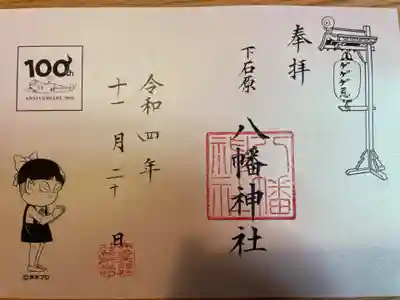 奉拝
ゲゲゲ忌
下石原
八幡神社
令和四年
十一月二十日
100th
ANNIVERSARY 2022
©水木プロ